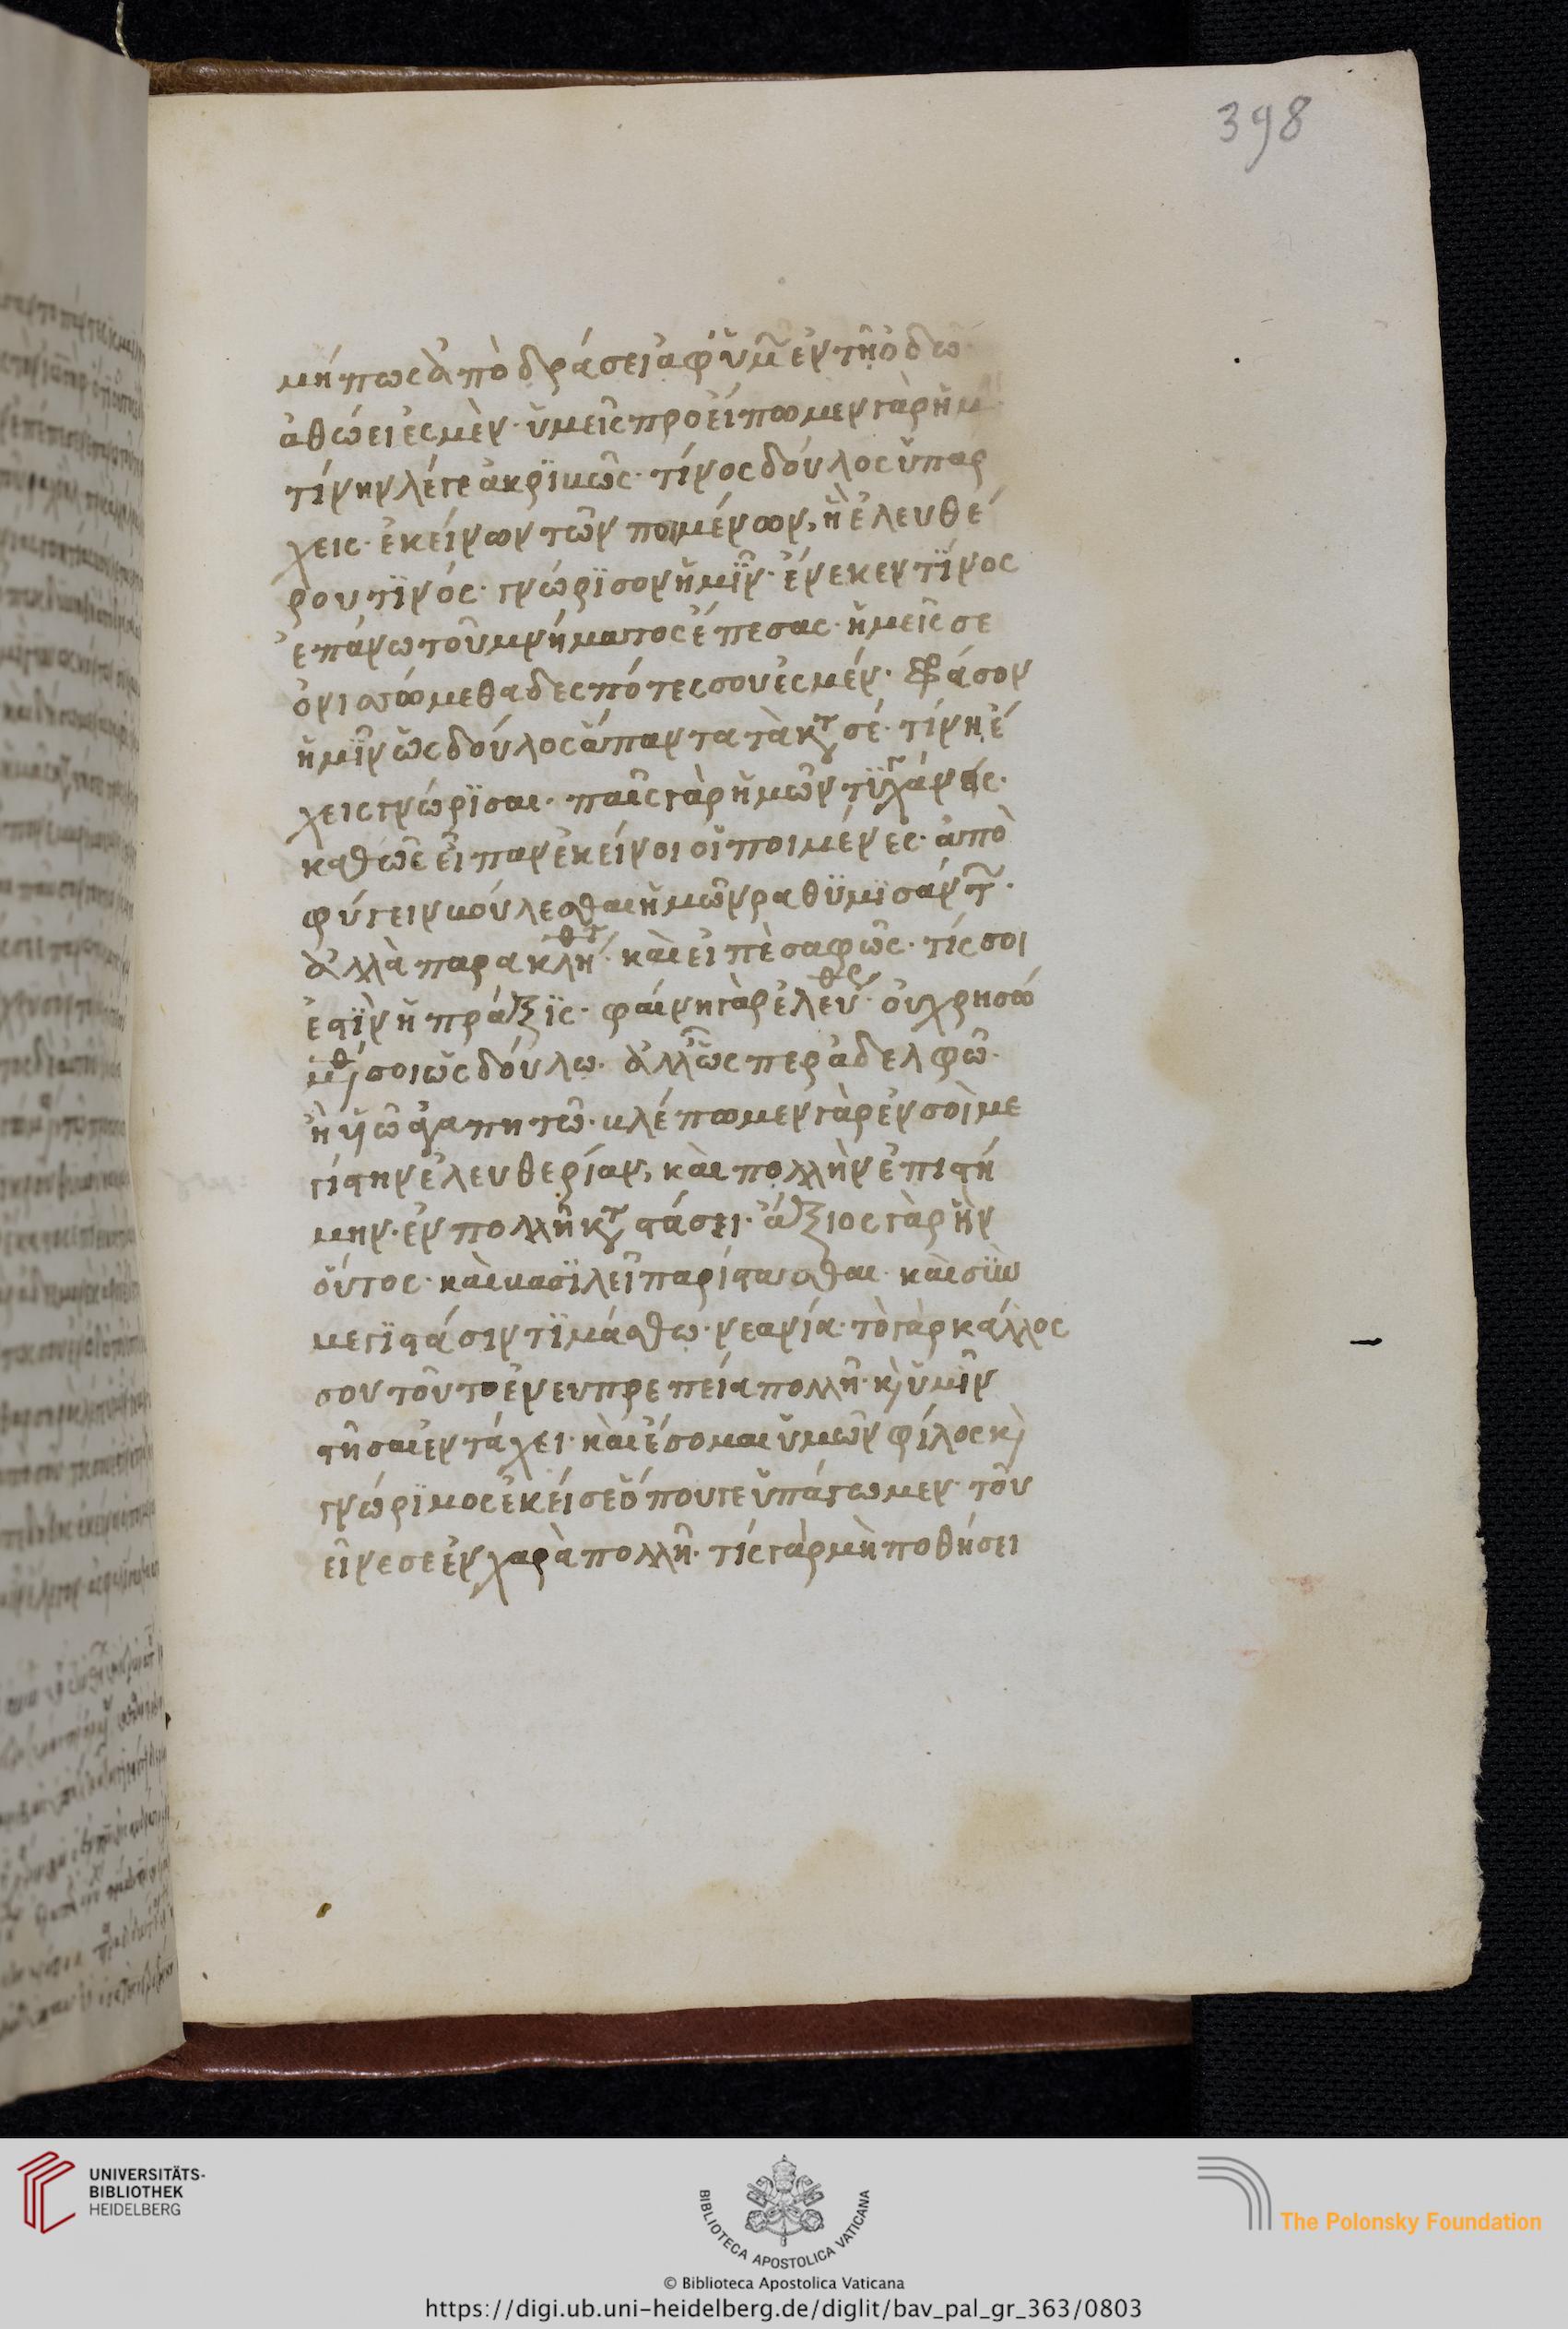 398
μήπως ἀπὸ δράσει ἀφ' ὑμ~ ἐν τῆ ὁδῶ·
ἀθώει ἐσμὲν· ὑμεῖς προείπωμεν γὰρ ἡμ
τίνην λέγε ἀκρϊβῶς· τίνος δούλος ὑπαρ
χεις· ἐκείνων τῶν ποιμένων, ἢ ἐλευθέ
ρου τϊνός· γνώρϊσον ἡμῖν· ἕνεκεν τϊνος
ἐπάνω τοῦ μνήματος ἔπεσας· ἡμεῖς σε
ὀνισώμεθα δεσπότες σου ἐσμέν·
ἡμῖν ὡς δούλος ἅπαντα τὰ κτ σέ· τίνη ἔ
χεις γνώρϊσαι· παῖς γὰρ ἡμῶν
καθὼς εἶπαν ἐκείνοι οἱ ποιμένες· ἀπὸ
φύγειν βούλεσθαι ἡμῶν ραθϋμϊσάντ~·
ἀλλὰ παρακλήθτ· καὶ εἰπὲ σαφῶς· τίς σοι
ἐστϊν ἡ πράξϊς· φαίνη γὰρ ἐλεύθς· οὐ χρησώ
μθ σοι ὡς δούλω· ἀλλ' ὥσπερ ἀδελφῶ·
ἢ υἱῶ ἀγαπητῶ· βλέπωμεν γὰρ ἐν σοὶ με
γίστην ἐλευθερίαν, καὶ πολλὴν ἐπιστή
μην· ἐν πολλῆ κτ στάσει· ἄξιος γὰρ ἦν
οὗτος· καὶ βασϊλεῖ παρίστασθαι· καὶ σὺν
μεγϊστάσιν τϊμάσθω· νεανία· τὸ γὰρ κάλλος
σου τοῦτο ἐν ευπρεπεία πολλῆ· κὶ ὑμῖν
στῆσαι ἐν τάχει· καὶ ἔσομαι ὑμῶν φίλος κὶ
γνώρϊμος ἐκείσε ὅπου γε ὑπάγωμεν· τοῦ
εῖνε σε ἐν χαρὰ πολλῆ· τίς γὰρ μὴ ποθήσει
UNIVERSITÄTS-
BIBLIOTHEK
HEIDELBERG
BIBLIOTECA APOSTOLICA VATICANA
The Polonsky Foundation
© Biblioteca Apostolica Vaticana
https://digi.ub.uni-heidelberg.de/diglit/bav_pal_gr_363/0803